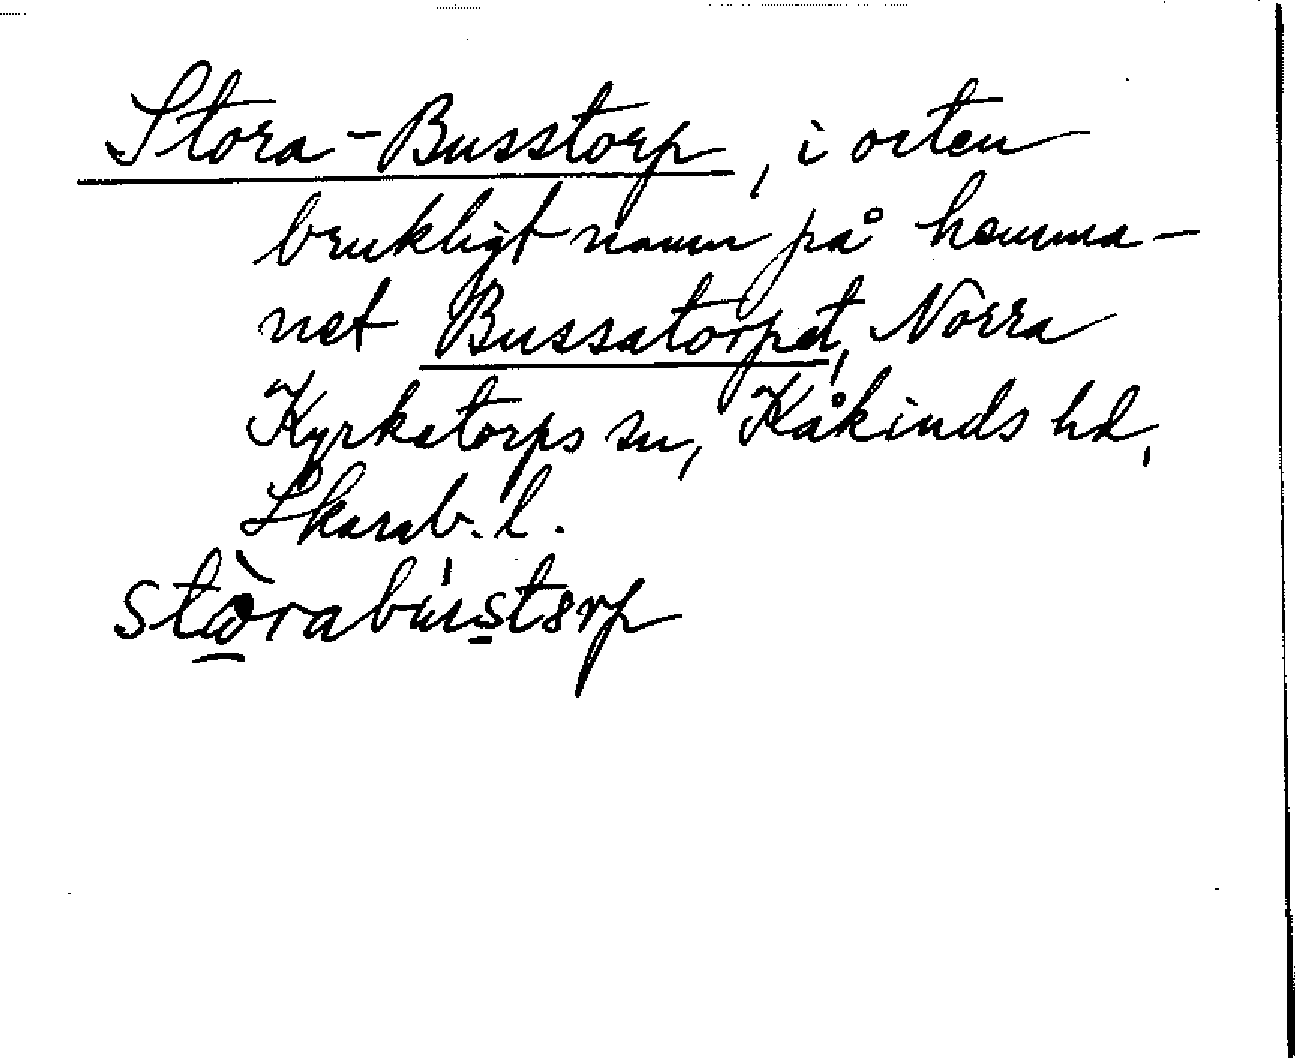 Stora-Busstorp, i orten
brukligt namn på hemma-
net Bussatorpet, Norra
Kyrketorps sn, Kåkinds hd,
Skarab. l.